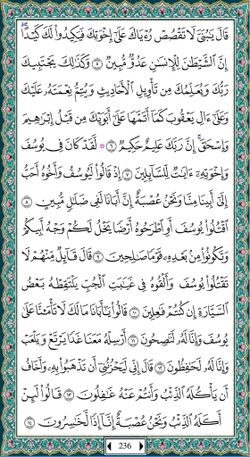 قَالَ يَٰبُنَىَّ لَا تَقْصُصْ رُءْيَاكَ عَلَىٰٓ إِخْوَتِكَ فَيَكِيدُوا۟ لَكَ كَيْدًا ۖ
إِنَّ ٱلشَّيْطَٰنَ لِلْإِنسَٰنِ عَدُوٌّ مُّبِينٌ ٥ وَكَذَٰلِكَ يَجْتَبِيكَ
رَبُّكَ وَيُعَلِّمُكَ مِن تَأْوِيلِ ٱلْأَحَادِيثِ وَيُتِمُّ نِعْمَتَهُۥ عَلَيْكَ
وَعَلَىٰٓ ءَالِ يَعْقُوبَ كَمَآ أَتَمَّهَا عَلَىٰٓ أَبَوَيْكَ مِن قَبْلُ إِبْرَٰهِيمَ
وَإِسْحَٰقَ ۚ إِنَّ رَبَّكَ عَلِيمٌ حَكِيمٌ ٦ ۞ لَّقَدْ كَانَ فِى يُوسُفَ
وَإِخْوَتِهِۦٓ ءَايَٰتٌ لِّلسَّآئِلِينَ ٧ إِذْ قَالُوا۟ لَيُوسُفُ وَأَخُوهُ أَحَبُّ
إِلَىٰٓ أَبِينَا مِنَّا وَنَحْنُ عُصْبَةٌ إِنَّ أَبَانَا لَفِى ضَلَٰلٍ مُّبِينٍ ٨
ٱقْتُلُوا۟ يُوسُفَ أَوِ ٱطْرَحُوهُ أَرْضًا يَخْلُ لَكُمْ وَجْهُ أَبِيكُمْ
وَتَكُونُوا۟ مِنۢ بَعْدِهِۦ قَوْمًا صَٰلِحِينَ ٩ قَالَ قَآئِلٌ مِّنْهُمْ لَا
تَقْتُلُوا۟ يُوسُفَ وَأَلْقُوهُ فِى غَيَٰبَتِ ٱلْجُبِّ يَلْتَقِطْهُ بَعْضُ
ٱلسَّيَّارَةِ إِن كُنتُمْ فَٰعِلِينَ ١٠ قَالُوا۟ يَٰٓأَبَانَا مَا لَكَ لَا تَأْمَ۫نَّا عَلَىٰ
يُوسُفَ وَإِنَّا لَهُۥ لَنَٰصِحُونَ ١١ أَرْسِلْهُ مَعَنَا غَدًا يَرْتَعْ وَيَلْعَبْ
وَإِنَّا لَهُۥ لَحَٰفِظُونَ ١٢ قَالَ إِنِّى لَيَحْزُنُنِىٓ أَن تَذْهَبُوا۟ بِهِۦ وَأَخَافُ
أَن يَأْكُلَهُ ٱلذِّئْبُ وَأَنتُمْ عَنْهُ غَٰفِلُونَ ١٣ قَالُوا۟ لَئِنْ
أَكَلَهُ ٱلذِّئْبُ وَنَحْنُ عُصْبَةٌ إِنَّآ إِذًا لَّخَٰسِرُونَ ١٤
236